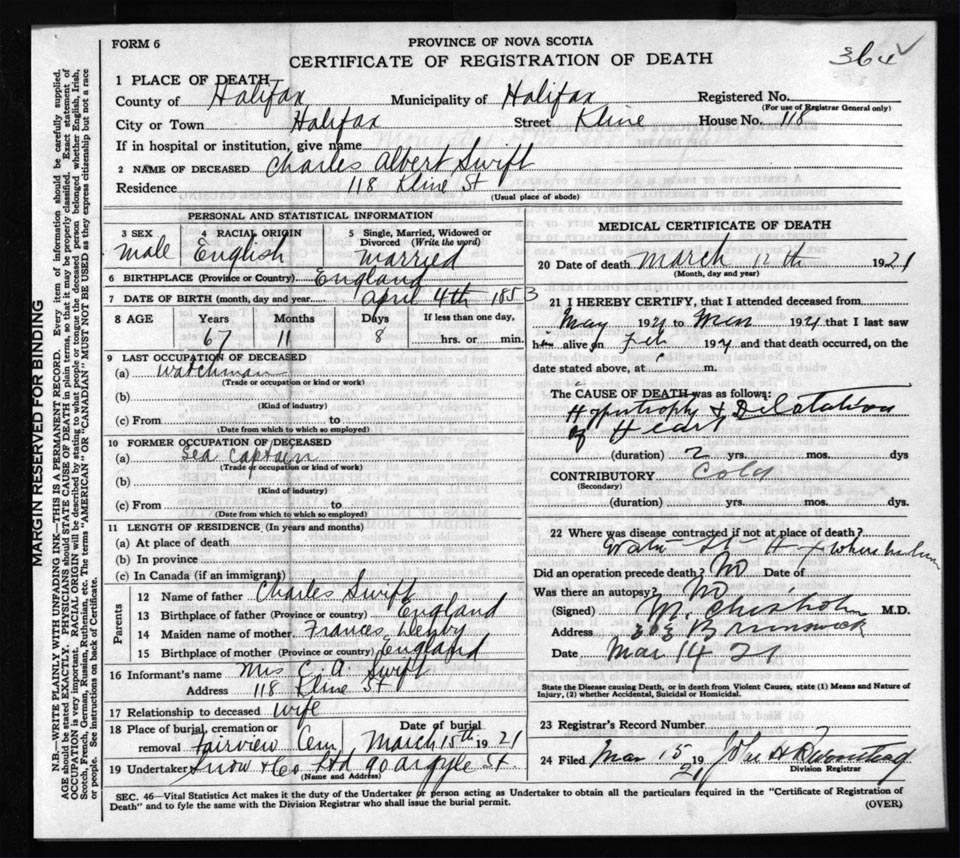 FORM 6
PROVINCE OF NOVA SCOTIA
364 ✓
CERTIFICATE OF REGISTRATION OF DEATH
1 PLACE OF DEATH
County of Halifax Municipality of Halifax Registered No.
(For use of Registrar General only)
City or Town Halifax Street Kline House No. 118
If in hospital or institution, give name
2 NAME OF DECEASED Charles Albert Swift
Residence 118 Kline St
(Usual place of abode)
PERSONAL AND STATISTICAL INFORMATION
3 SEX 4 RACIAL ORIGIN 5 Single, Married, Widowed or Divorced (Write the word)
Male English Married
6 BIRTHPLACE (Province or Country) England
7 DATE OF BIRTH (month, day and year) April 4th 1853
8 AGE Years Months Days If less than one day,
67 11 8 hrs. or min.
9 LAST OCCUPATION OF DECEASED
(a) Watchman
(Trade or occupation or kind or work)
(b)
(Kind of industry)
(c) From to
(Date from which to which so employed)
10 FORMER OCCUPATION OF DECEASED
(a) Sea Captain
(Trade or occupation or kind of work)
(b)
(Kind of industry)
(c) From to
(Date from which to which so employed)
11 LENGTH OF RESIDENCE (In years and months)
(a) At place of death
(b) In province
(c) In Canada (if an immigrant)
Parents
12 Name of father Charles Swift
13 Birthplace of father (Province or country) England
14 Maiden name of mother Frances Denby
15 Birthplace of mother (Province or country) England
16 Informant's name Mrs C. A Swift
Address 118 Kline St
17 Relationship to deceased Wife
18 Place of burial, cremation or removal Fairview Cem, Date of burial March 15th 1921
19 Undertaker Snow & Co Ltd 90 Argyle St.
(Name and Address)
MEDICAL CERTIFICATE OF DEATH
20 Date of death March 12th 1921
(Month, day and year)
21 I HEREBY CERTIFY, that I attended deceased from
May 1921 to Mar 1921 that I last saw
him alive on Feb 1921 and that death occurred, on the
date stated above, at m.
The CAUSE OF DEATH was as follows:
Hypertrophy & Dilatation
of Heart
(duration) 2 yrs. mos. dys
CONTRIBUTORY Cold
(Secondary)
(duration) yrs. mos. dys.
22 Where was disease contracted if not at place of death?
Water St
Did an operation precede death? No Date of
Was there an autopsy? No
(Signed) M. Chisholm M.D.
Address 303 Brunswick
Date Mar 14 21
State the Disease causing Death, or in death from Violent Causes, state (1) Means and Nature of
Injury, (2) whether Accidental, Suicidal or Homicidal.
23 Registrar's Record Number
24 Filed Mar 15 1921 John H
Division Registrar
SEC. 46—Vital Statistics Act makes it the duty of the Undertaker or person acting as Undertaker to obtain all the particulars required in the "Certificate of Registration of
Death" and to fyle the same with the Division Registrar who shall issue the burial permit.
(OVER)
MARGIN RESERVED FOR BINDING
N.B.—WRITE PLAINLY WITH UNFADING INK—THIS IS A PERMANENT RECORD. Every item of information should be carefully supplied.
AGE should be stated EXACTLY. PHYSICIANS should STATE CAUSE OF DEATH in plain terms, so that it may be properly classified. Exact statement of
OCCUPATION is very important. RACIAL ORIGIN will be described by stating to what people or tongue the deceased person belonged, whether English, Irish,
Scotch, French, German, Russian, Ruthenian, etc. The terms "AMERICAN" OR "CANADIAN" MUST NOT BE USED as they express citizenship but not a race
or people. See instructions on back of Certificate.